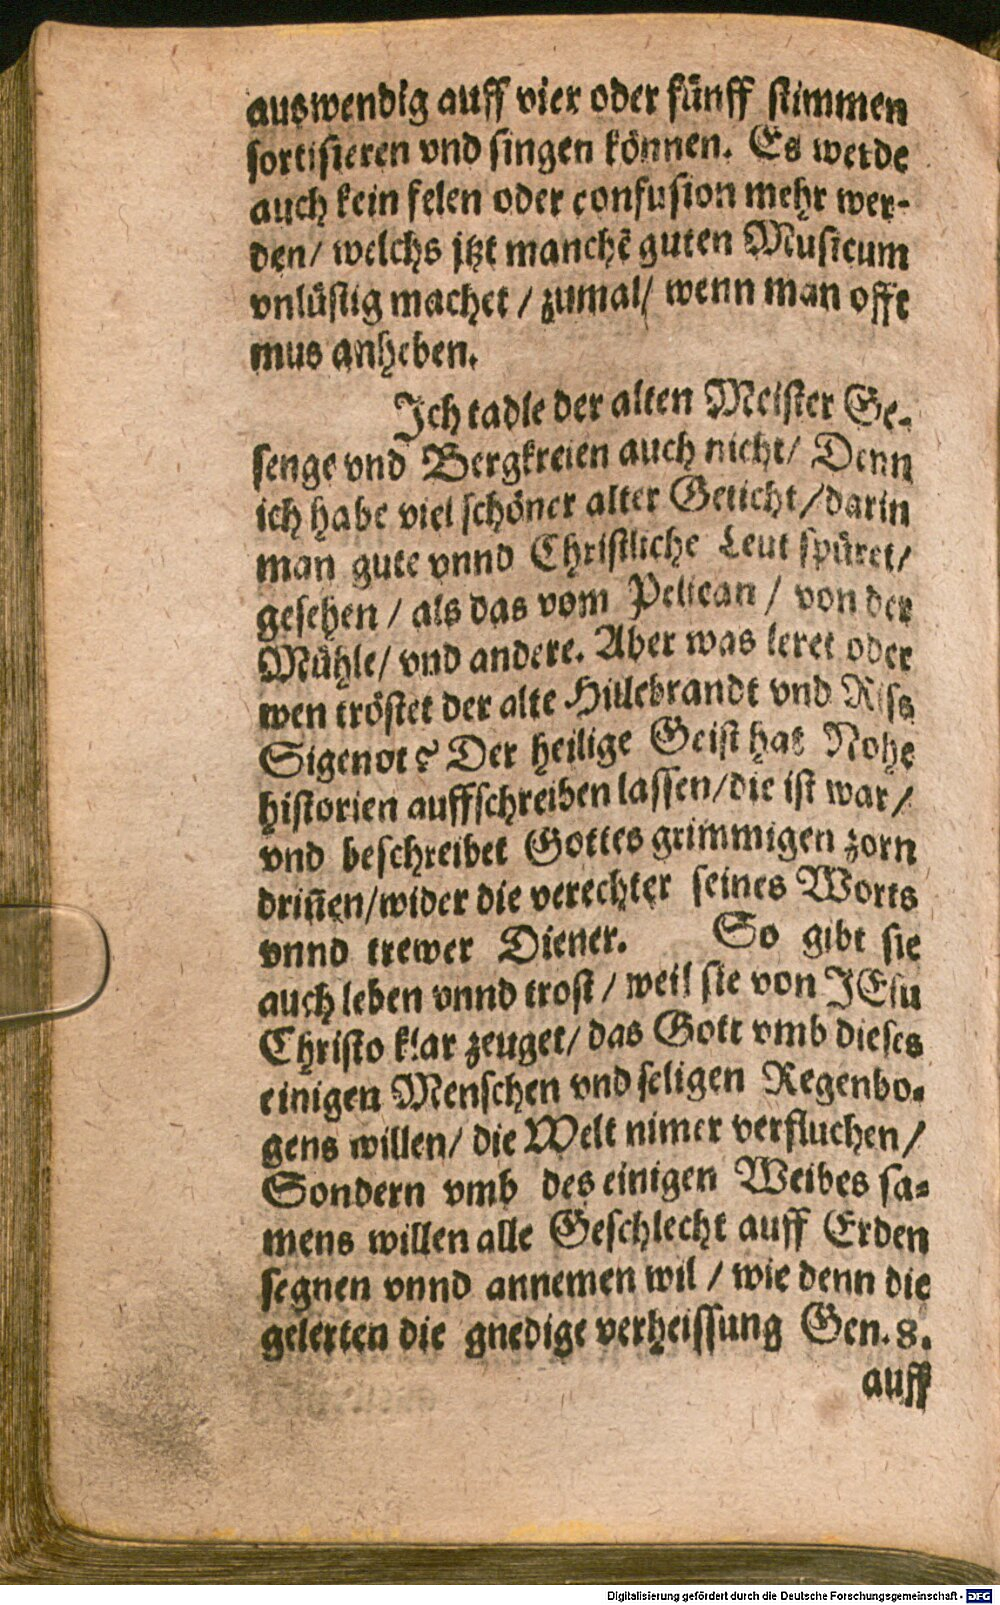 auswendig auff vier oder fünff stimmen
sortisieren vnd singen können. Es werde
auch kein felen oder confusion mehr wer-
den/ welchs jtzt manchē guten Musicum
vnlüstig machet / zumal/ wenn man offt
mus anheben.
Ich tadle der alten Meister Ge-
senge vnd Bergkreien auch nicht/ Denn
ich habe viel schöner alter Geticht/darin
man gute vnnd Christliche Leut spüret/
gesehen / als das vom Pelican / von der
Mühle/ vnd andere. Aber was leret oder
wen tröstet der alte Hillebrandt vnd Riss
Sigenot? Der heilige Geist hat Nohe
historien auffschreiben lassen/die ist war/
vnd beschreibet Gottes grimmigen zorn
driñen/wider die verechter seines Worts
vnnd trewer Diener. So gibt sie
auch leben vnnd trost / weil sie von JEsu
Christo klar zeuget/ das Gott vmb dieses
einigen Menschen vnd seligen Regenbo-
gens willen/ die Welt nimer verfluchen/
Sondern vmb des einigen Weibes sa-
mens willen alle Geschlecht auff Erden
segnen vnnd annemen wil / wie denn die
gelerten die gnedige verheissung Gen. 8.
auff
Digitalisierung gefördert durch die Deutsche Forschungsgemeinschaft - DFG